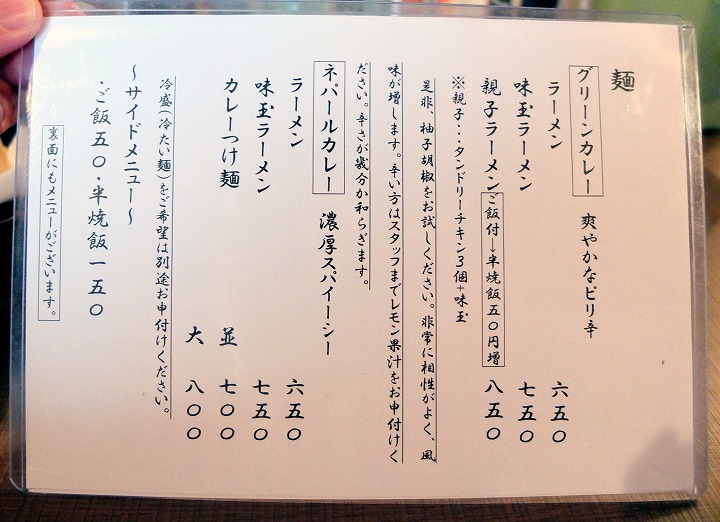 麺
グリーンカレー 爽やかなピリ辛
ラーメン 六五〇
味玉ラーメン 七五〇
親子ラーメン ご飯付→半焼飯五〇円増 八五〇
※親子・・・タンドリーチキン3個+味玉
是非、柚子胡椒をお試しください。非常に相性がよく、風
味が増します。辛い方はスタッフまでレモン果汁をお申付けく
ださい。辛さが幾分か和らぎます。
ネパールカレー 濃厚スパイーシー
ラーメン 六五〇
味玉ラーメン 七五〇
カレーつけ麺 並 七〇〇
大 八〇〇
冷盛(冷たい麺)をご希望は別途お申付けください。
~サイドメニュー~
・ご飯五〇・半焼飯一五〇
裏面にもメニューがございます。